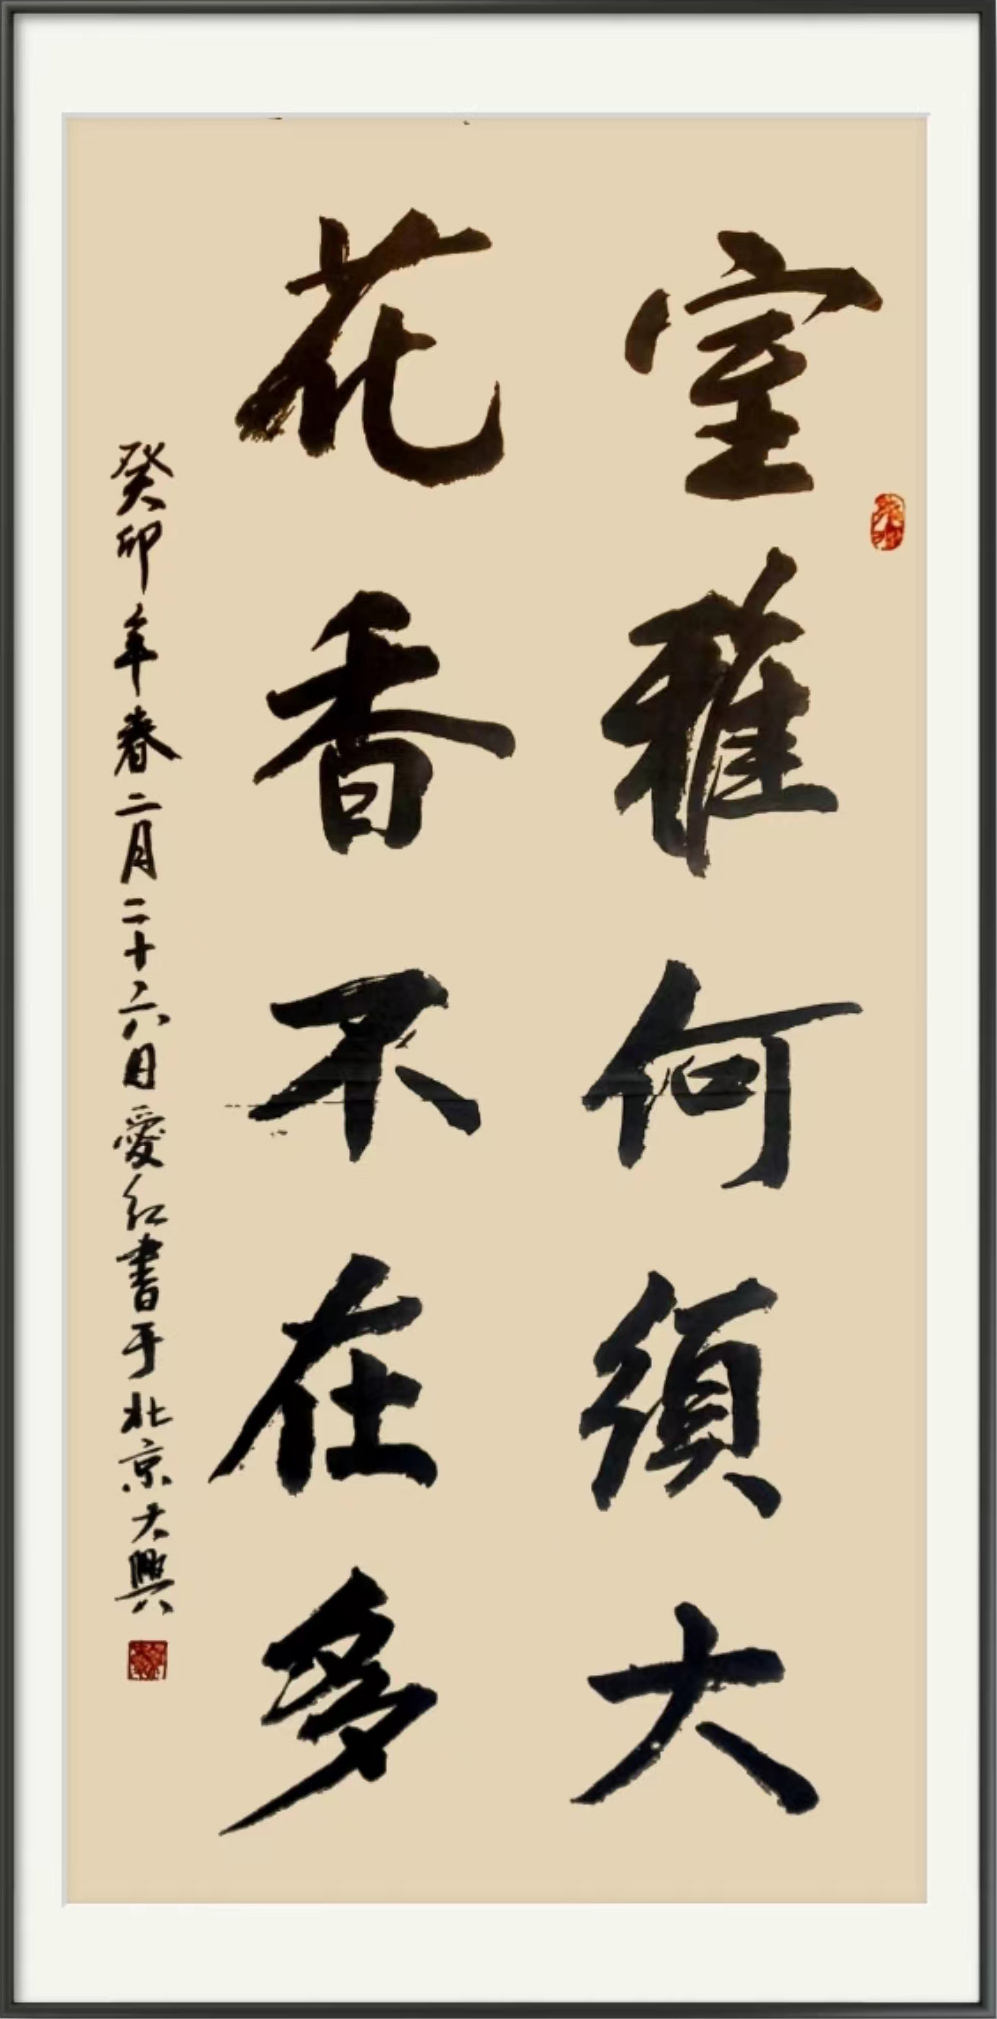 室雅何須大
花香不在多
癸卯年春二月二十六日愛红書于北京大興